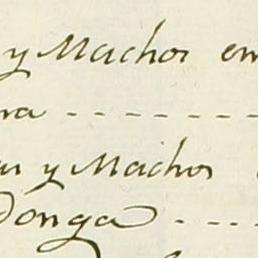 y Machos em
ra - - - - - - - -
as y Machos
Donga - - - -